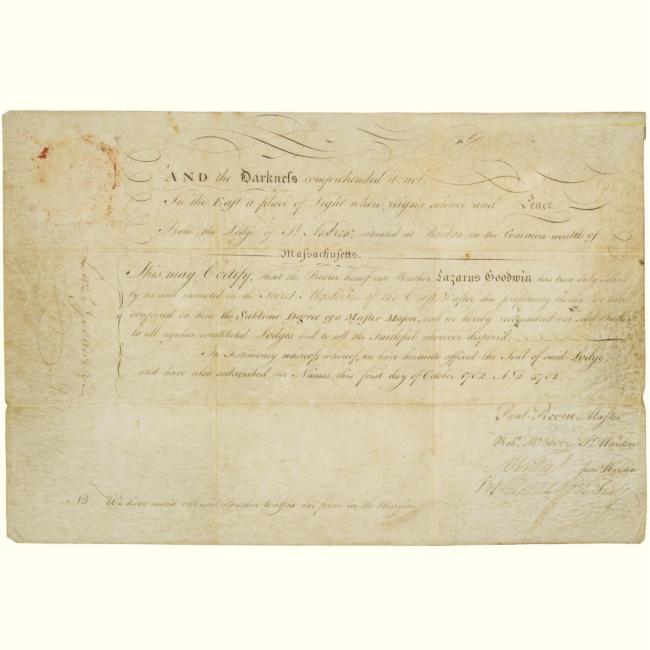 AND the Darkneſs comprehended it not.
In the East a place of Light where reigns silence and Peace.
From the Lodge of St. Andrew, situated at Boston in the Common-wealth of
Maſsachuſetts.
This may Certify, that the Bearer hereof our Brother Lazarus Goodwin has been duly
by us and initiated in the Secret Mysteries of the Craft, after due proficiency therein we have
conferred on him the Sublime Degree of a Maſter Maſon, and we hereby recommend our said Brother
to all regular constituted Lodges and to all the Faithful wherever dispers'd.
In Testimony whereof, whereof, we have hereunto affixed the Seal of said Lodge,
and have also subscribed our Names, this first day of October 1782. A.D. 5782.
Paul Revere Maſter
Robt. Sr. Warden
Jun. Warden
Secy
NB We have caused our said Brother to affix his hand in the Margin